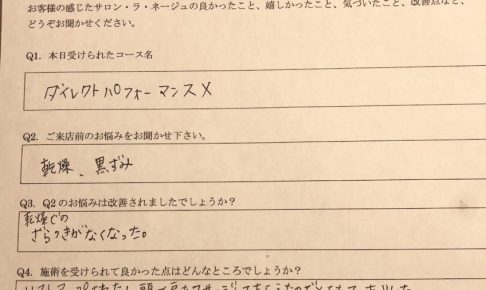 お客様の感じたサロン・ラ・ネージュの良かったこと、嬉しかったこと、気づいたこと、改善点など、
どうぞお聞かせください。
Q1．本日受けられたコース名
ダイレクトパフォーマンスX
Q2．ご来店前のお悩みをお聞かせ下さい。
乾燥、黒ずみ
Q3．Q2のお悩みは改善されましたでしょうか？
乾燥での
ざらつきがなくなった。
Q4．施術を受けられて良かった点はどんなところでしょうか？